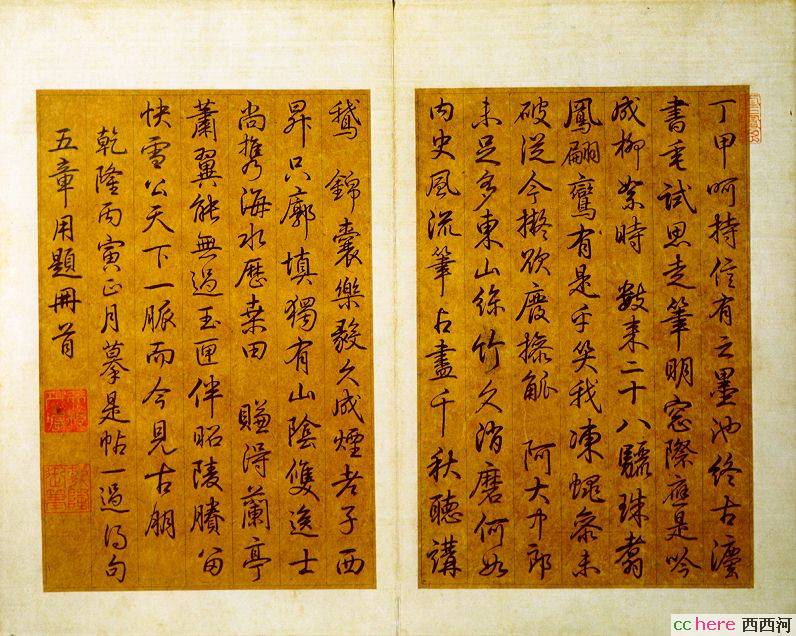 丁甲呵持信有之墨池終古灋
書垂試思走筆明窗際應是吟
成柳絮時 數來二十八驪珠翥
鳳翩鸞有是乎笑我凍蠅參未
破從今擬欲廢操觚 阿大中郎
未足多東山絲竹久消磨何如
內史風流筆占盡千秋聽講
鵝 錦囊樂毅久成煙老子西
昇只廓填獨有山陰雙逸士
尚攜海水歷桑田 賺得蘭亭
蕭翼能無過玉匣伴昭陵賸留
快雪公天下一脈而今見古朋
乾隆丙寅正月摹是帖一過得句
五章用題冊首
cchere 西西河